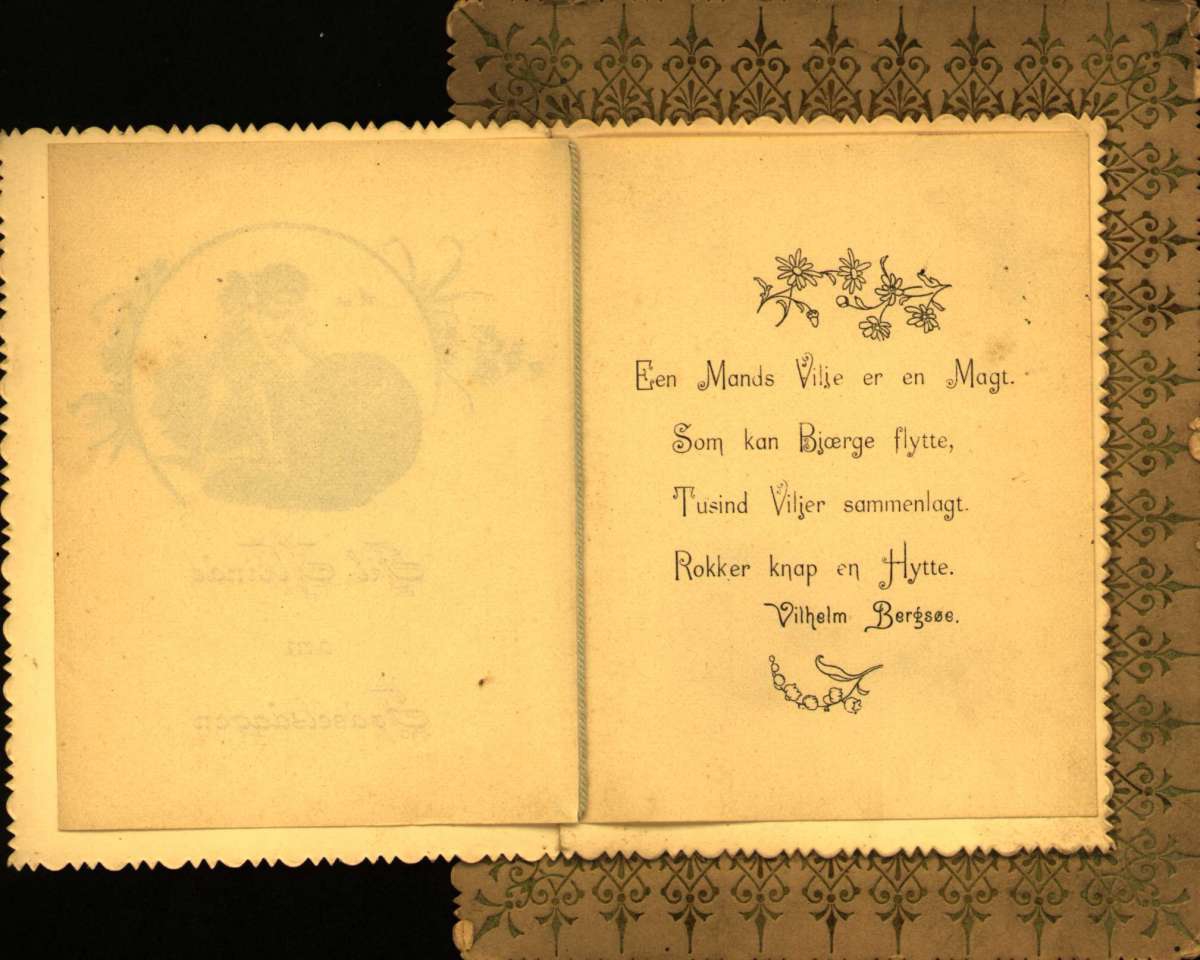 Een Mands Vilje er en Magt.
Som kan Bjœrge flytte,
Tusind Viljer sammenlagt.
Rokker knap en Hytte.
Vilhelm Bergsøe.